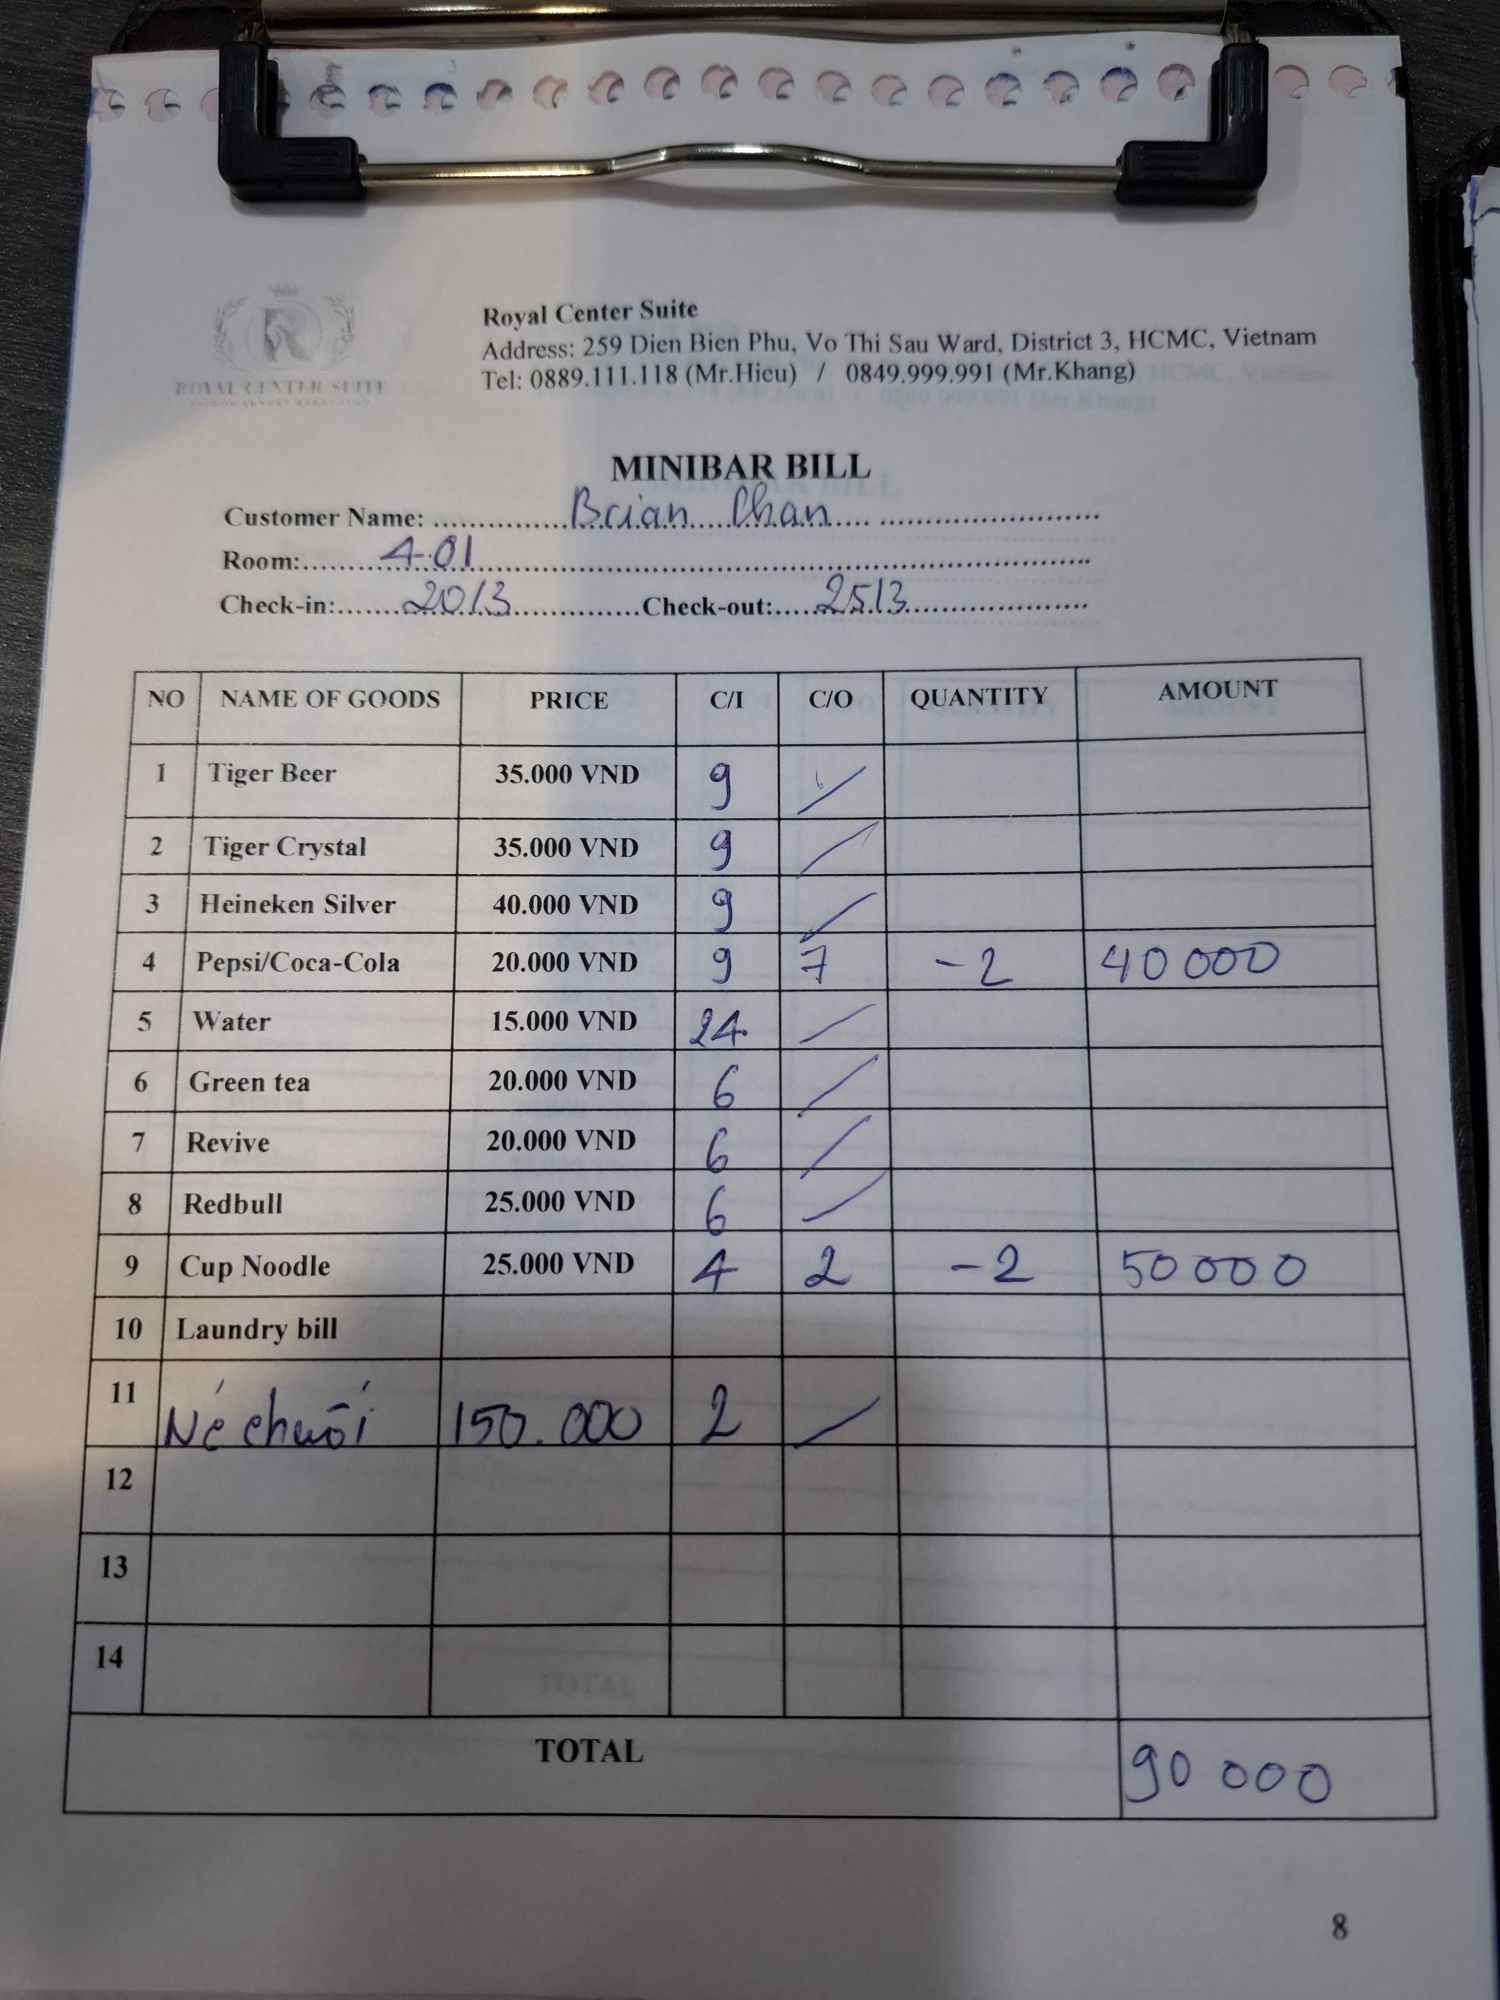 ROYAL CENTER SUITE
Royal Center Suite
Address: 259 Dien Bien Phu, Vo Thi Sau Ward, District 3, HCMC, Vietnam
Tel: 0889.111.118 (Mr.Hieu) / 0849.999.991 (Mr.Khang)
MINIBAR BILL
Customer Name: Brian Chan
Room: 401
Check-in: 20/3 Check-out: 25/3
NO NAME OF GOODS PRICE C/I C/O QUANTITY AMOUNT
1 Tiger Beer 35.000 VND 9 /
2 Tiger Crystal 35.000 VND 9 /
3 Heineken Silver 40.000 VND 9 /
4 Pepsi/Coca-Cola 20.000 VND 9 7 -2 40 000
5 Water 15.000 VND 24 /
6 Green tea 20.000 VND 6 /
7 Revive 20.000 VND 6 /
8 Redbull 25.000 VND 6 /
9 Cup Noodle 25.000 VND 4 2 -2 50 000
10 Laundry bill
11 Né chuối 150.000 2 /
12
13
14
TOTAL 90 000
8